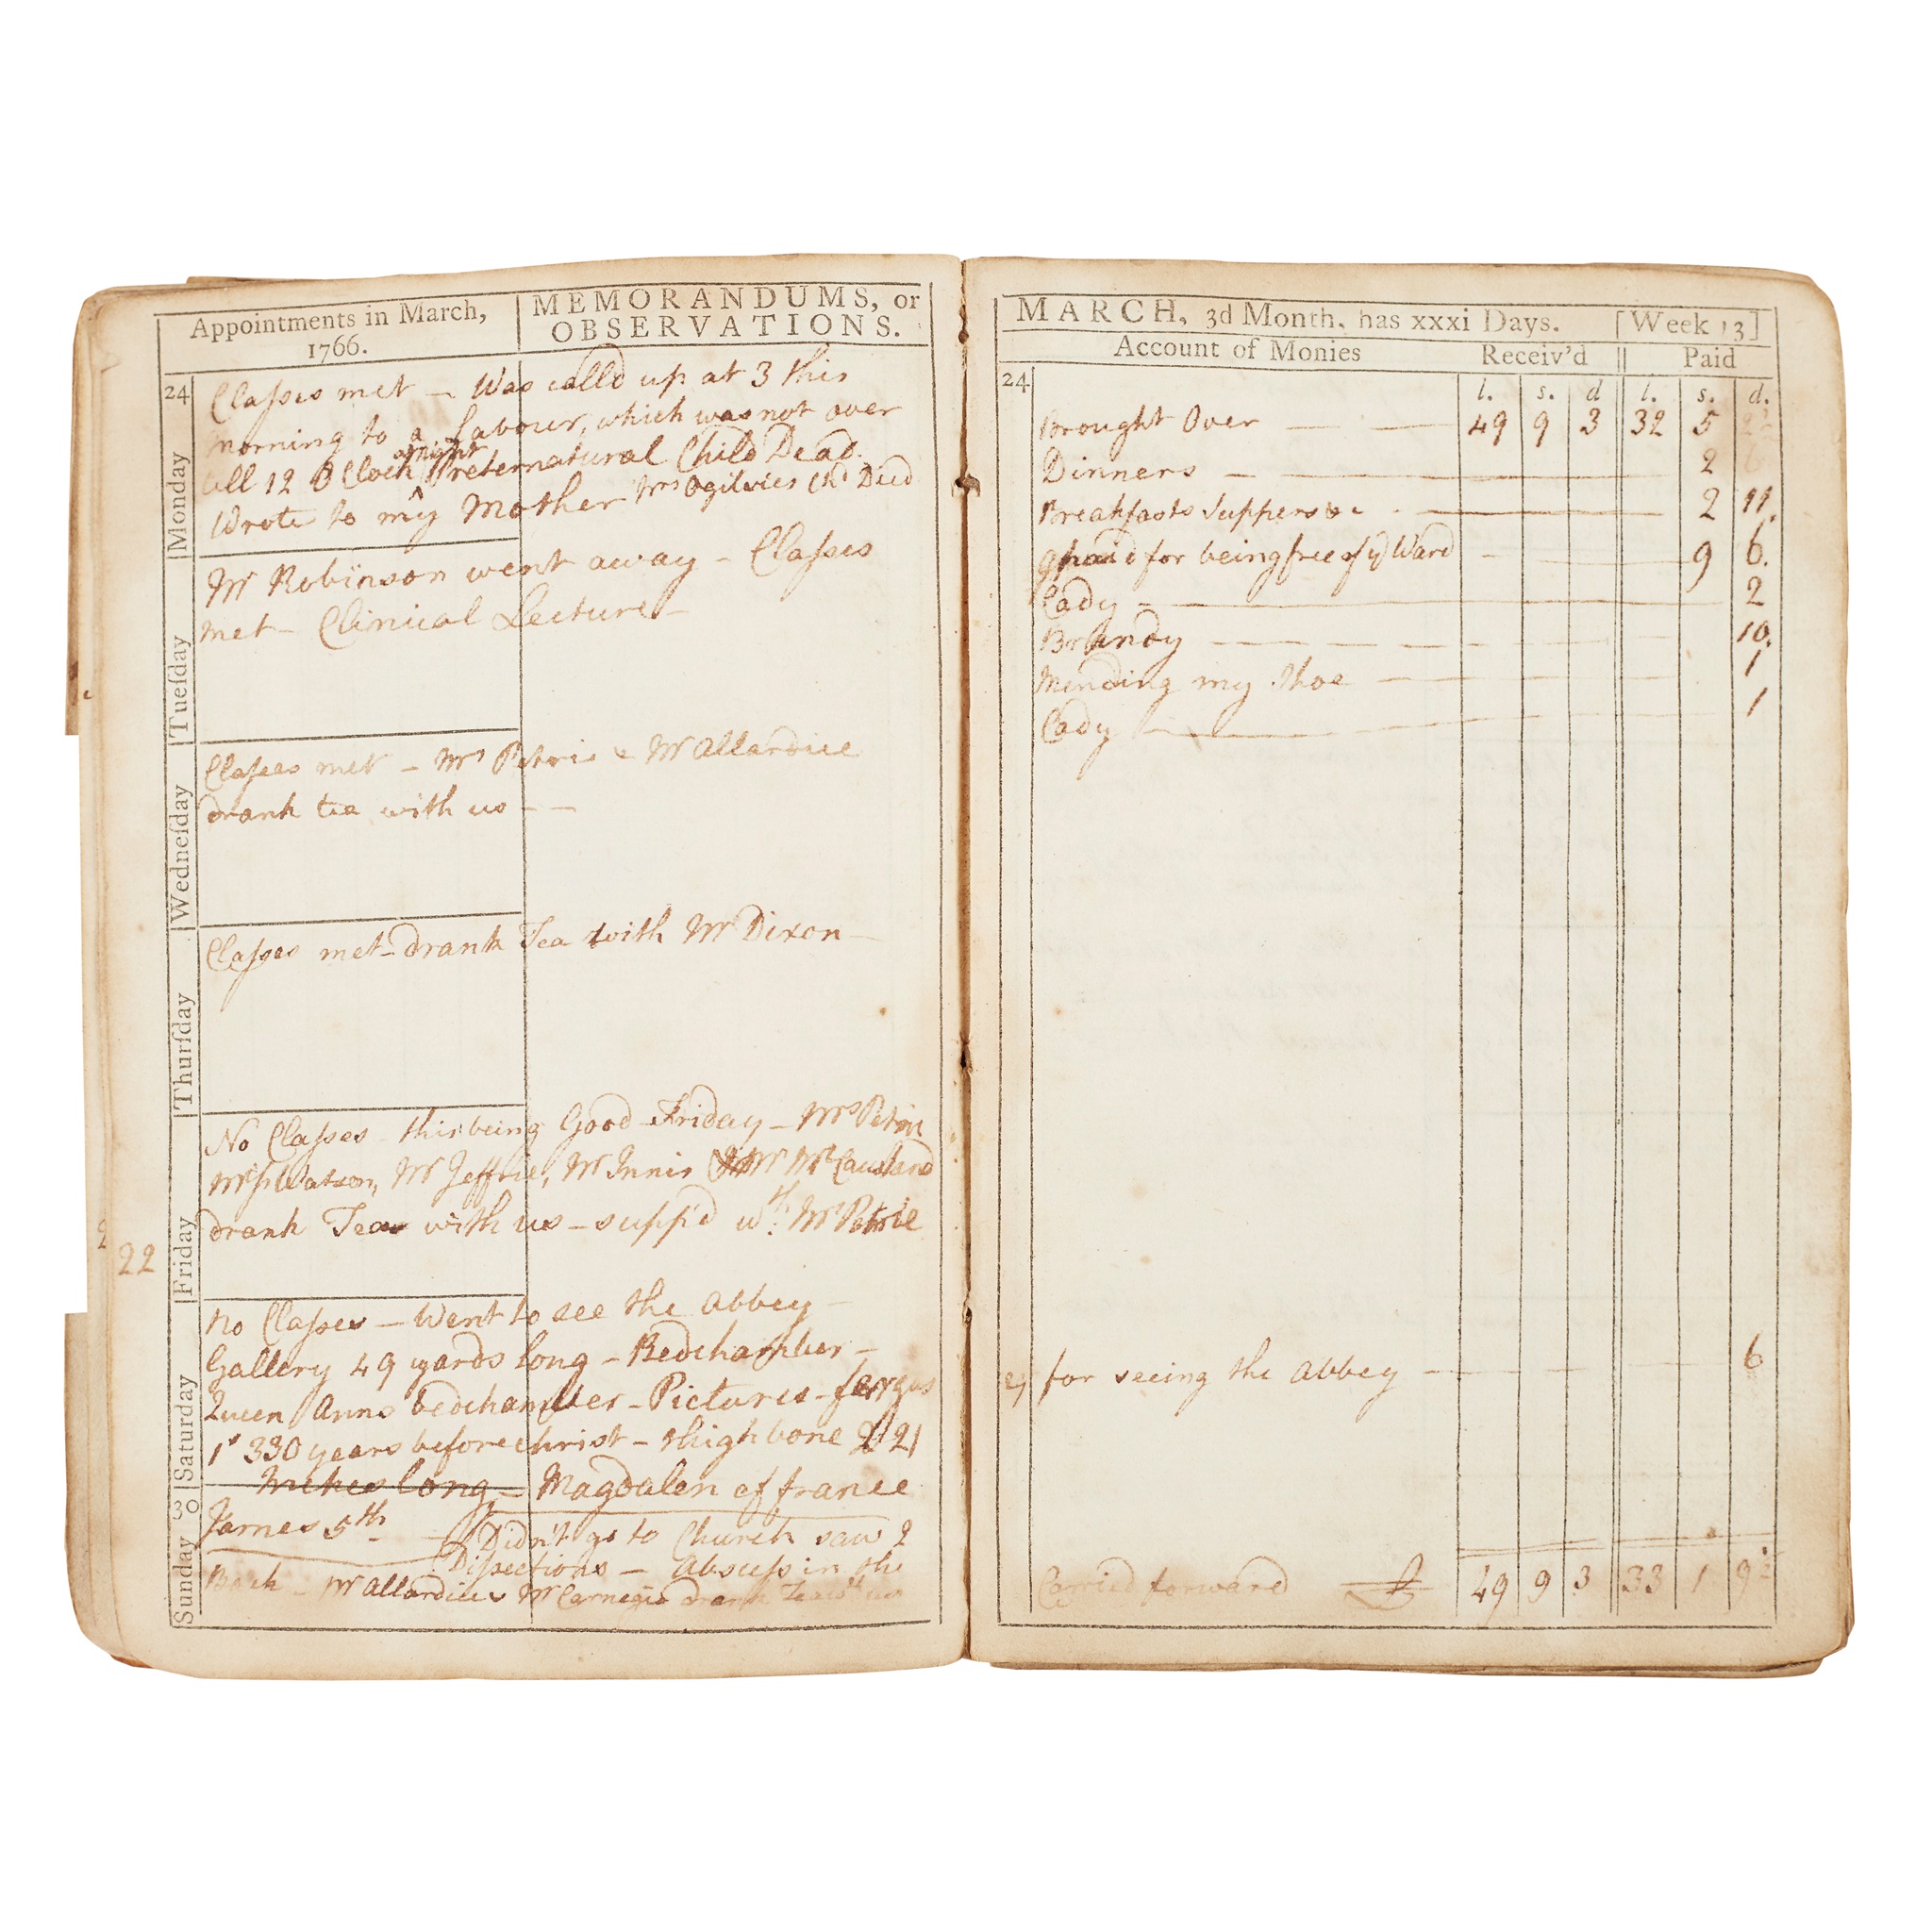 Appointments in March,
1766.
MEMORANDUMS, or
OBSERVATIONS.
24
Monday
Claſses met – Was call'd up at 3 this
morning to a Labour, which was not over
till 12 O Clock at night Preternatural Child Dead.
Wrote to my Mother Mrs Ogilvies Chd Died
Tueſday
Mr Robinson went away – Claſses
met – Clinical Lecture –
Wedneſday
Claſses met – Mrs Petrie & Mr Allardice
drank tea with us – –
Thurſday
Claſses met – drank Tea with Mr Dixon –
22
Friday
No Claſses – this being Good Friday – Mrs Petrie
Watson, Mr Jeffrie, Mr Innis Mr McCausland
drank Tea with us – supp'd wth. Mr Petrie
Saturday
No Claſses – Went to see the Abbey –
Gallery 49 yards long – Bedchamber –
Queen Anns bedchamber – Pictures – fergus
1st 330 years before Christ – thigh bone 21
Inches long – Magdalen of france
30
Sunday
James 5th –
Didn't go to Church saw 2
Diſsections – Absceſs in the
Back – Mr Allardice & Mr Carnegie drank Tea wt us
MARCH, 3d Month, has xxxi Days. [Week 13]
Account of Monies Receiv'd Paid
24 l. s. d l. s. d.
Brought Over — — 49 9 3 32 5
Dinners — 2 6
Breakfasts Suppers &c – — 2 11.
paid for being free of ye Ward – — 9 6.
Cady – — 2
Brandy — — — — 10.
Mending my Shoe — — 1
Cady — — 1
29 for seeing the Abbey — — 6
Carried forward 49 9 3 33 1 9½